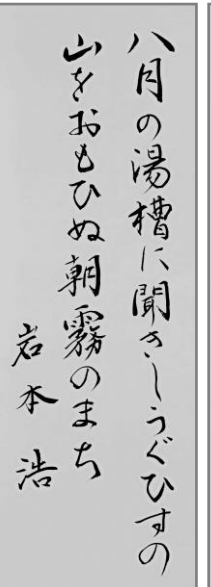 八月の湯槽に聞きしうぐひすの
山をおもひぬ朝霧のまち
岩本浩